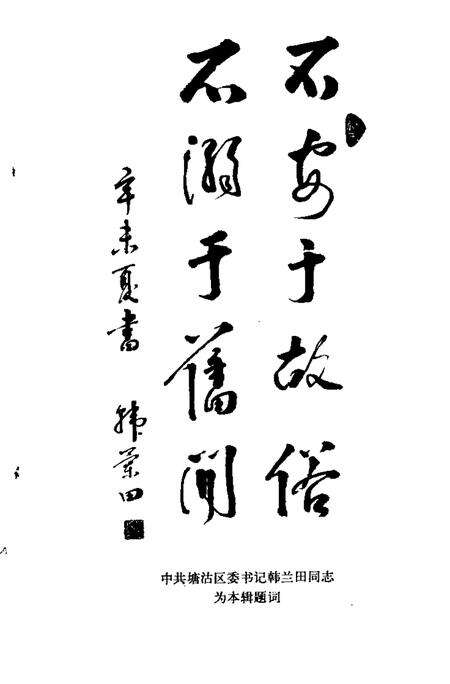 不安于故俗
不溺于舊聞
辛未夏書 韩蘭田
中共塘沽区委书记韩兰田同志
为本辑题词